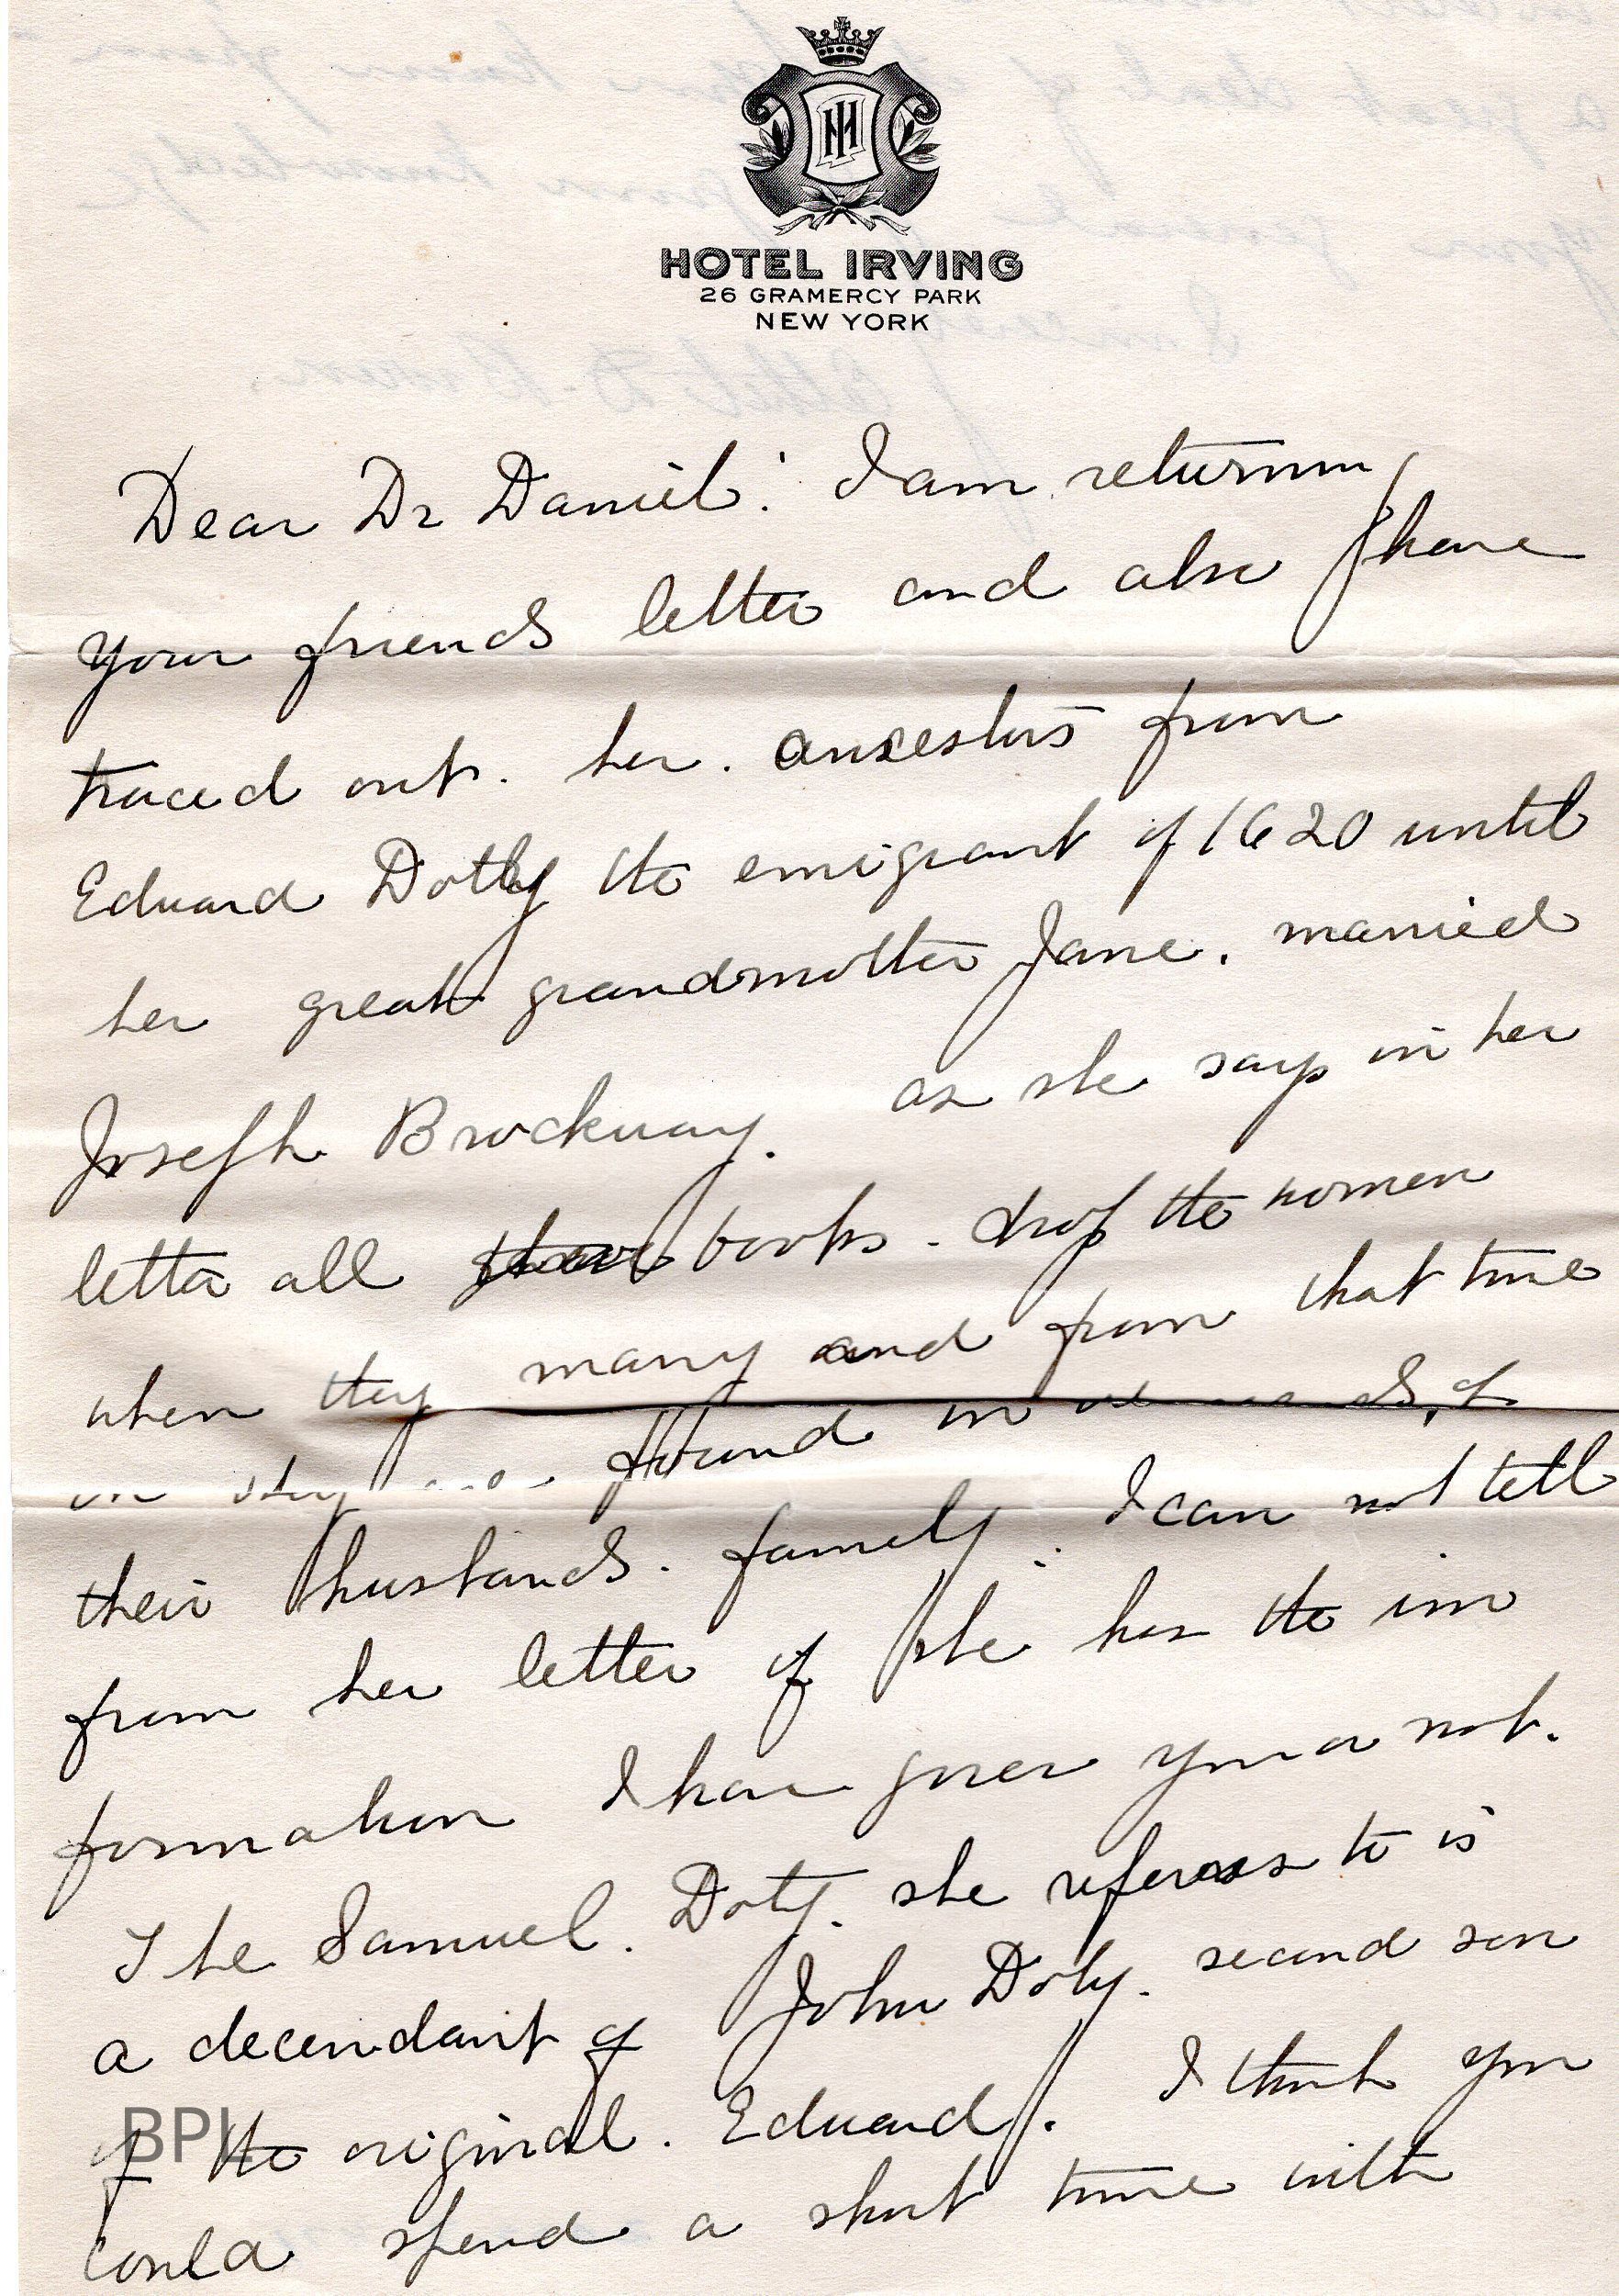 HOTEL IRVING
26 GRAMERCY PARK
NEW YORK
Dear Dr Daniel: I am returning
your friends letter and also have
traced out. her. ancestors from
Edward Doty the emigrant of 1620 until
her great grandmother Jane. married
Joseph Brockway. as she says in her
letter all books. drop the women
when they marry and from that time
on they are found in records of
their husbands. family. I can not tell
from her letter if she has the in
formation I have given you or not.
The Samuel. Doty. she referes to is
a decendant of John Doty. second son
of the original. Edward. I think you
could spend a short time with
BPL